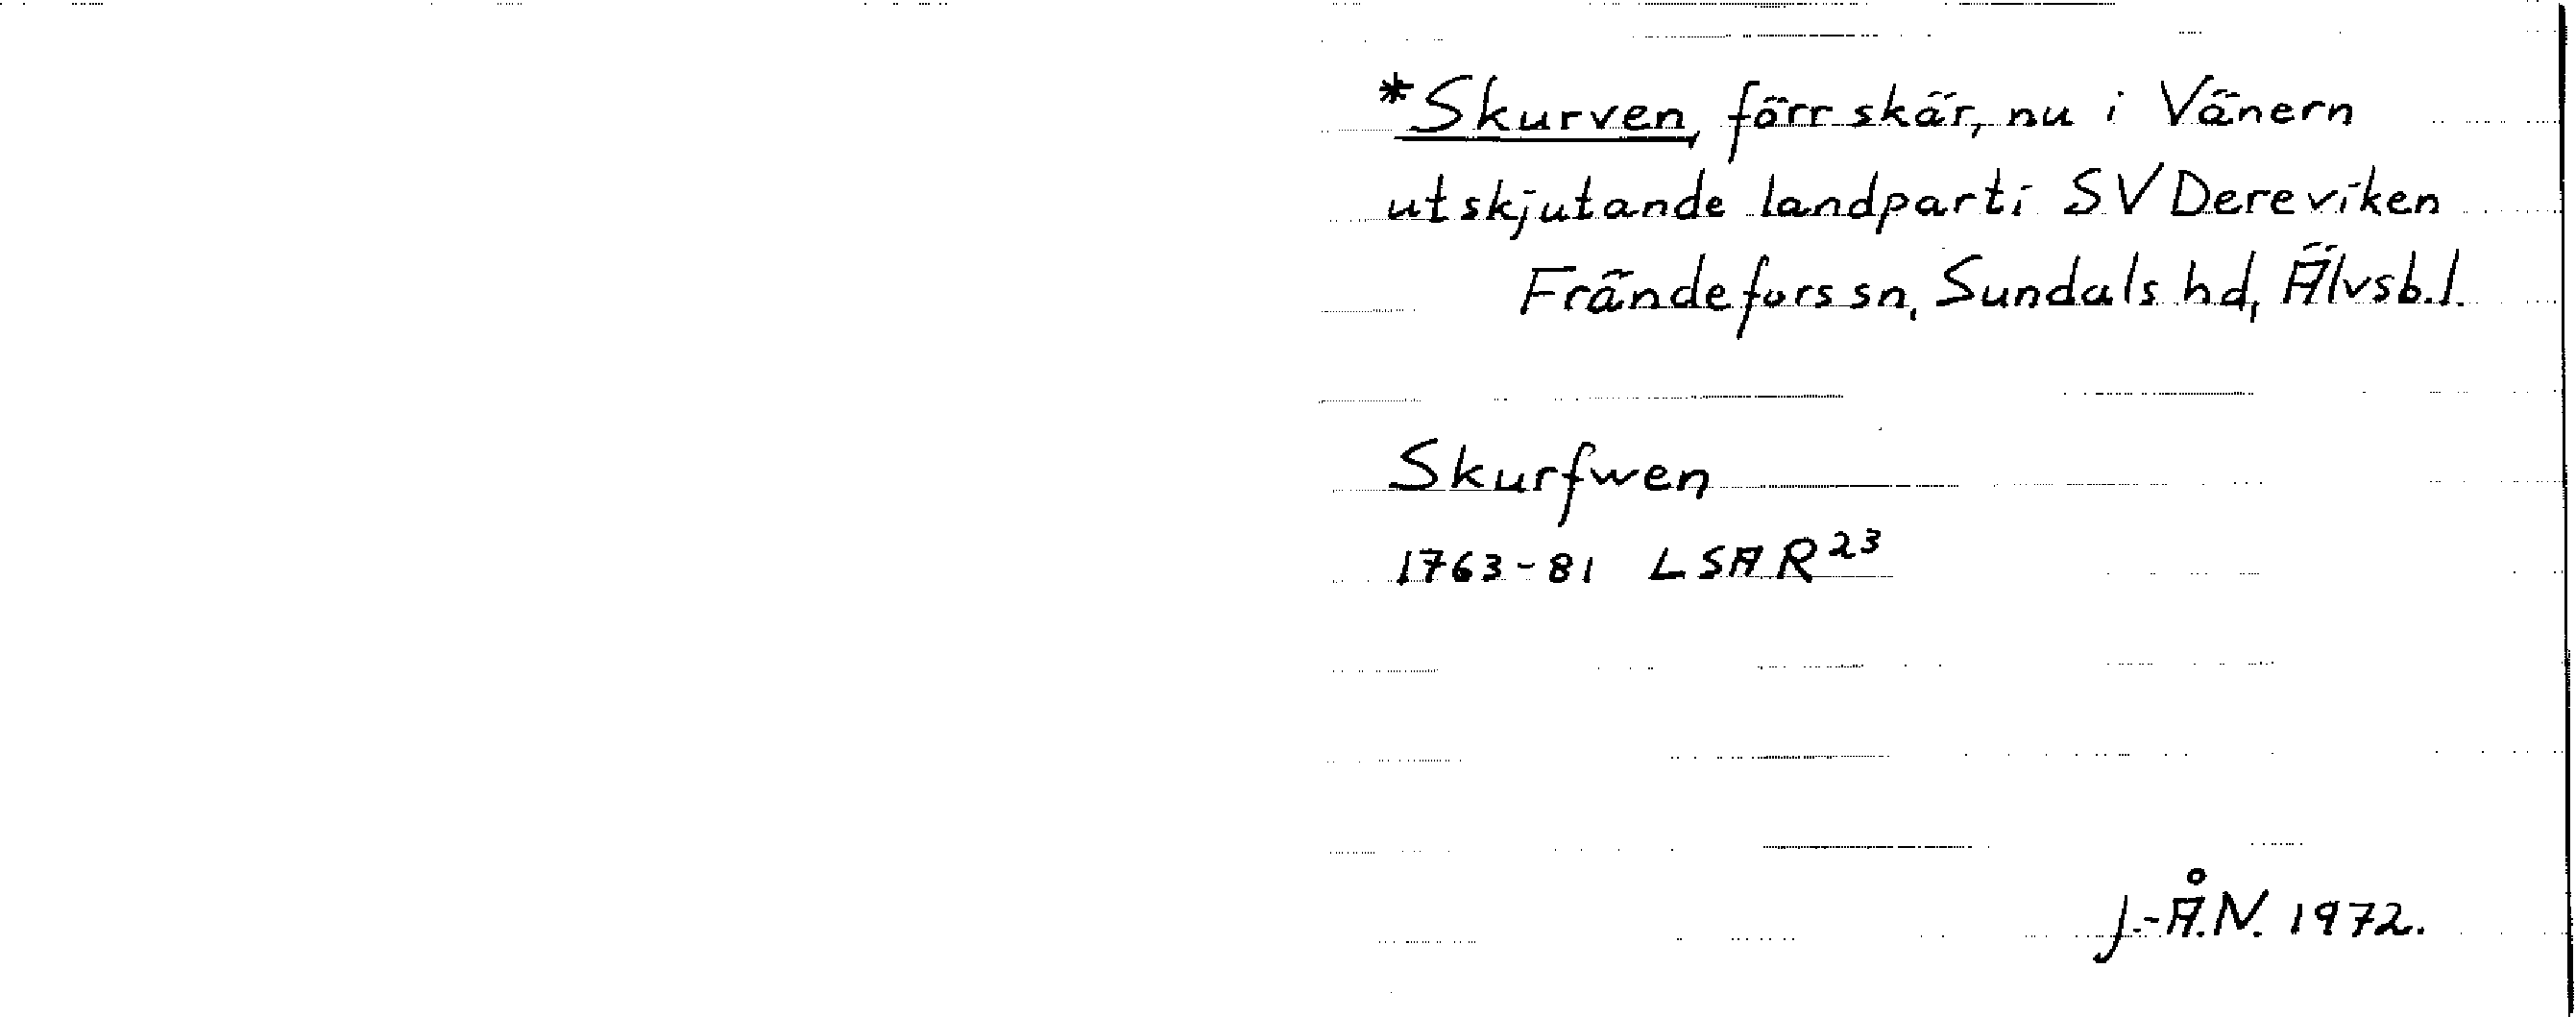 *Skurven, förr skär, nu i Vänern
utskjutande landparti SV Dereviken
Frändefors sn, Sundals hd, Älvsb. l.
Skurfwen
1763-81 LSA R²³
J.-Å.N. 1972.